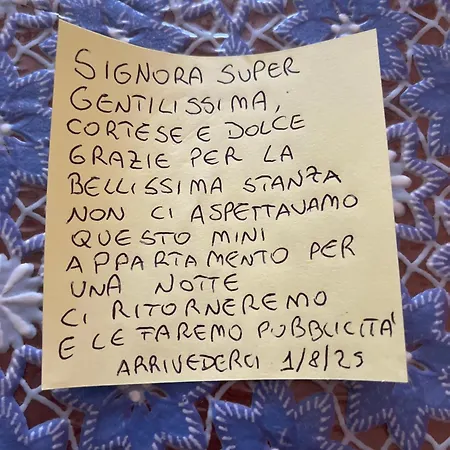 SIGNORA SUPER
GENTILISSIMA,
CORTESE E DOLCE
GRAZIE PER LA
BELLISSIMA STANZA
NON CI ASPETTAVAMO
QUESTO MINI
APPARTAMENTO PER
UNA NOTTE
CI RITORNEREMO
E LE FAREMO PUBBLICITA'
ARRIVEDERCI 1/8/25